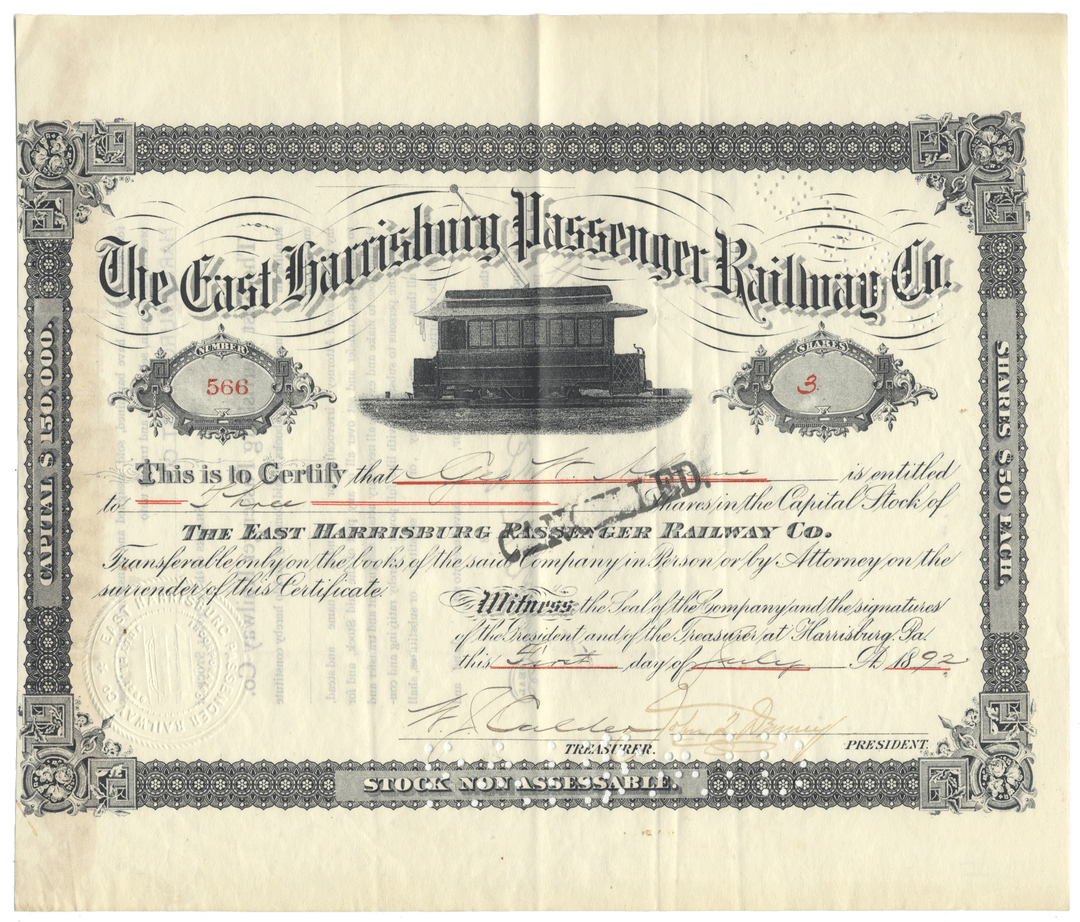 The East Harrisburg Passenger Railway Co.
NUMBER
566
SHARES
3
CAPITAL $ 150,000.
SHARES $50 EACH.
This is to Certify that Geo. W. is entitled
to Three Shares in the Capital Stock of
THE EAST HARRISBURG PASSENGER RAILWAY CO.
Transferable only on the books of the said Company in Person or by Attorney on the
surrender of this Certificate.
CANCELLED.
Witness, the Seal of the Company and the signatures
of the President and of the Treasurer at Harrisburg, Pa.
this First day of July A.D. 1892
W. J. Calder
TREASURER.
PRESIDENT.
EAST HARRISBURG PASSENGER RAILWAY CO.
STOCK NON ASSESSABLE.